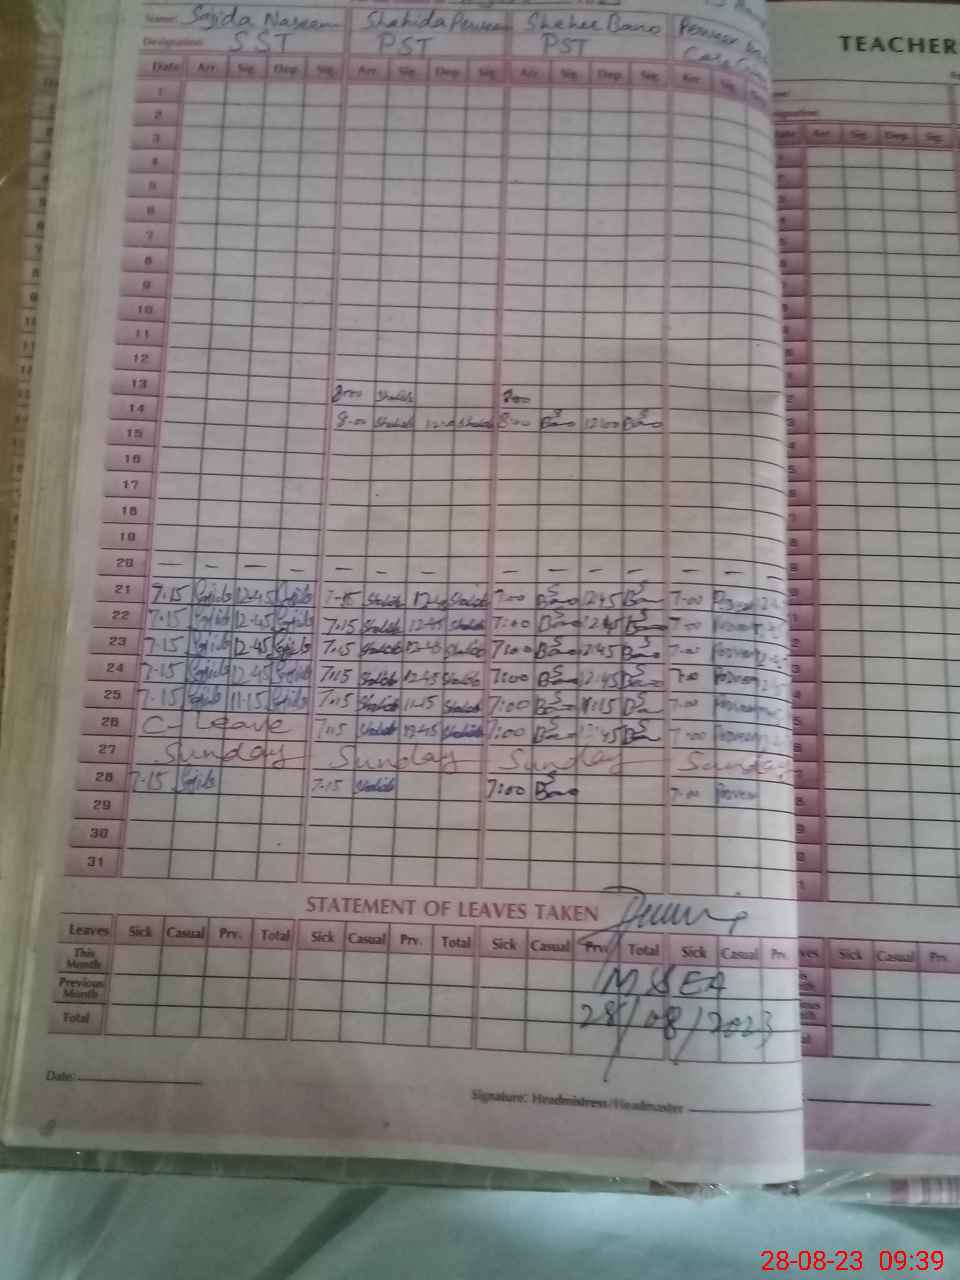 Name: Sajida Naseem Shahida Perveen Shahee Bano Perveen
Designation: SST PST PST
Date Arr. Sig. Dep. Sig. Arr. Sig. Dep. Sig. Arr. Sig. Dep. Sig. Arr. Sig.
1
2
3
4
5
6
7
8
9
10
11
12
13
14 8:00 Shahida 8:00
15 8:00 Shahida Shahida 8:00 S Bano 12:00 S Bano
16
17
18
19
20 — — — — — — — — — — — — — — —
21 7.15 Sajida 12.45 Sajida 7.15 Shahida 12.45 Shahida 7:00 S Bano 12.45 S Bano 7.00 Perveen
22 7.15 Sajida 12.45 Sajida 7.15 Shahida 12.45 Shahida 7:00 S Bano 12.45 S Bano 7.00 Perveen
23 7.15 Sajida 12.45 Sajida 7.15 Shahida 12.45 Shahida 7:00 S Bano 12.45 S Bano 7.00 Perveen
24 7.15 Sajida 12.45 Sajida 7.15 Shahida 12.45 Shahida 7:00 S Bano 12.45 S Bano 7.00 Perveen
25 7.15 Sajida 11.15 Sajida 7.15 Shahida 11.15 Shahida 7:00 S Bano 11.15 S Bano 7.00 Perveen
26 C-Leave 7.15 Shahida 12.45 Shahida 7:00 S Bano 12.45 S Bano 7.00 Perveen
27 Sunday Sunday Sunday Sunday
28 7.15 Sajida 7.15 Shahida 7:00 S Bano 7.00 Perveen
29
30
31
STATEMENT OF LEAVES TAKEN
Leaves Sick Casual Prv. Total Sick Casual Prv. Total Sick Casual Prv. Total Sick Casual Prv.
This Month
Previous Month
Total
MSEA
28/08/2023
Date:
Signature: Headmistress/Headmaster
TEACHER
Arr. Sig. Dep. Sig.
Sick Casual Prv.
28-08-23 09:39